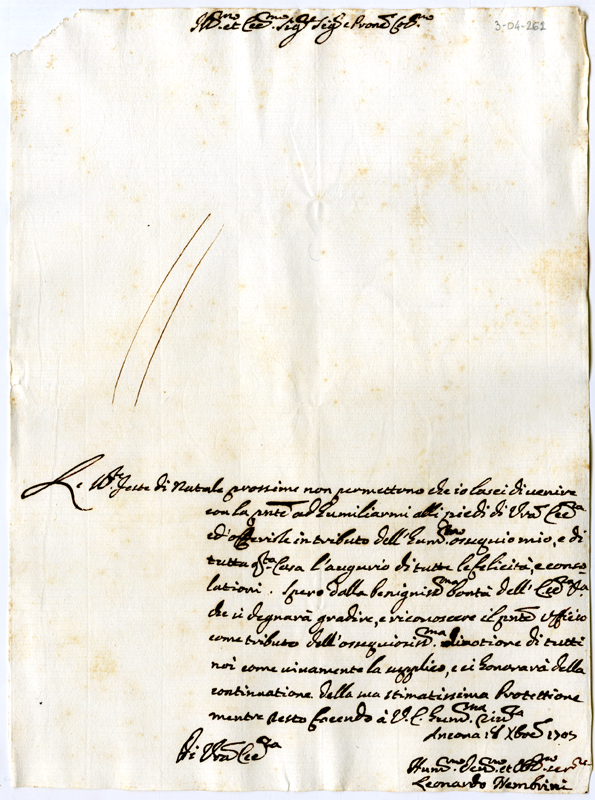 Ill.mo et Ecc.mo Sig.r Sig.r e Prone Col.mo
3-04-262
Le S.te feste di Natale prossime non permettono che io lasci di venire
con la pnte ad humiliarmi alli piedi di Vra Ecc.za
ed offerirle in tributo dell'hum.mo ossequio mio, e di
tutta q.ta Casa l'augurio di tutte le felicità, e conso=
lationi. Spero dalla benigniss.ma bontà dell'Ecc.za
che si degnarà gradire, e riconoscere il pnte offitio
come tributo dell'ossequiosiss.ma divotione di tutti
noi come vivamente la supplico, e ci honorarà della
continuatione della sua stimatissima Protettione
mentre resto facendo à V.E. hum.ma
Ancona Xbre 1707
Di Vra Ecc.za
Hum.mo Dev.mo et Obl.mo ser.re
Leonardo Nembrini